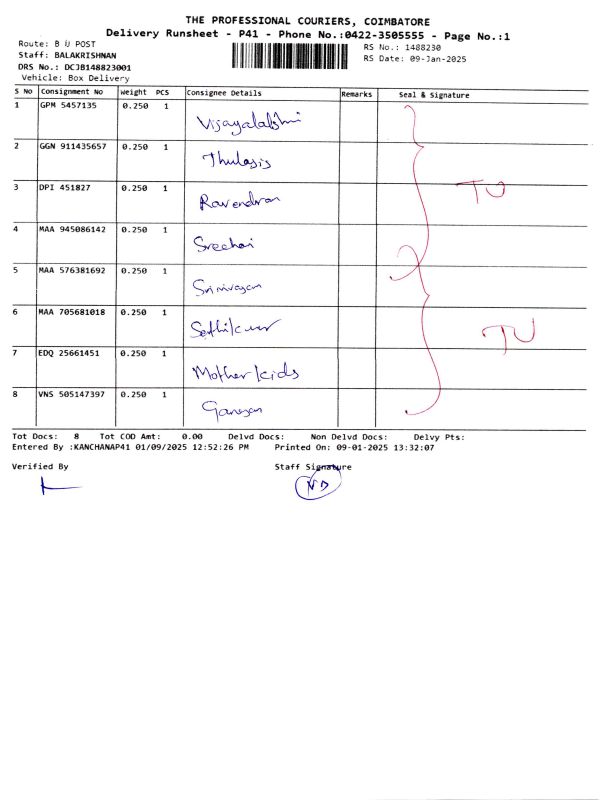 THE PROFESSIONAL COURIERS, COIMBATORE
Delivery Runsheet - P41 - Phone No.:0422-3505555 - Page No.:1
Route: B U POST
RS No.: 1488230
Staff: BALAKRISHNAN
RS Date: 09-Jan-2025
DRS No.: DCJB148823001
Vehicle: Box Delivery
S No Consignment No Weight PCS Consignee Details Remarks Seal & Signature
1 GPM 5457135 0.250 1 Vijayalakshmi
2 GGN 911435657 0.250 1 Thulasis
3 DPI 451827 0.250 1 Ravendran TU
4 MAA 945086142 0.250 1 Sreehari
5 MAA 576381692 0.250 1 Srinivasan
6 MAA 705681018 0.250 1 TU
7 EDQ 25661451 0.250 1 Mother kids
8 VNS 505147397 0.250 1 Ganesan
Tot Docs: 8 Tot COD Amt: 0.00 Delvd Docs: Non Delvd Docs: Delvy Pts:
Entered By :KANCHANAP41 01/09/2025 12:52:26 PM Printed On: 09-01-2025 13:32:07
Verified By Staff Signature